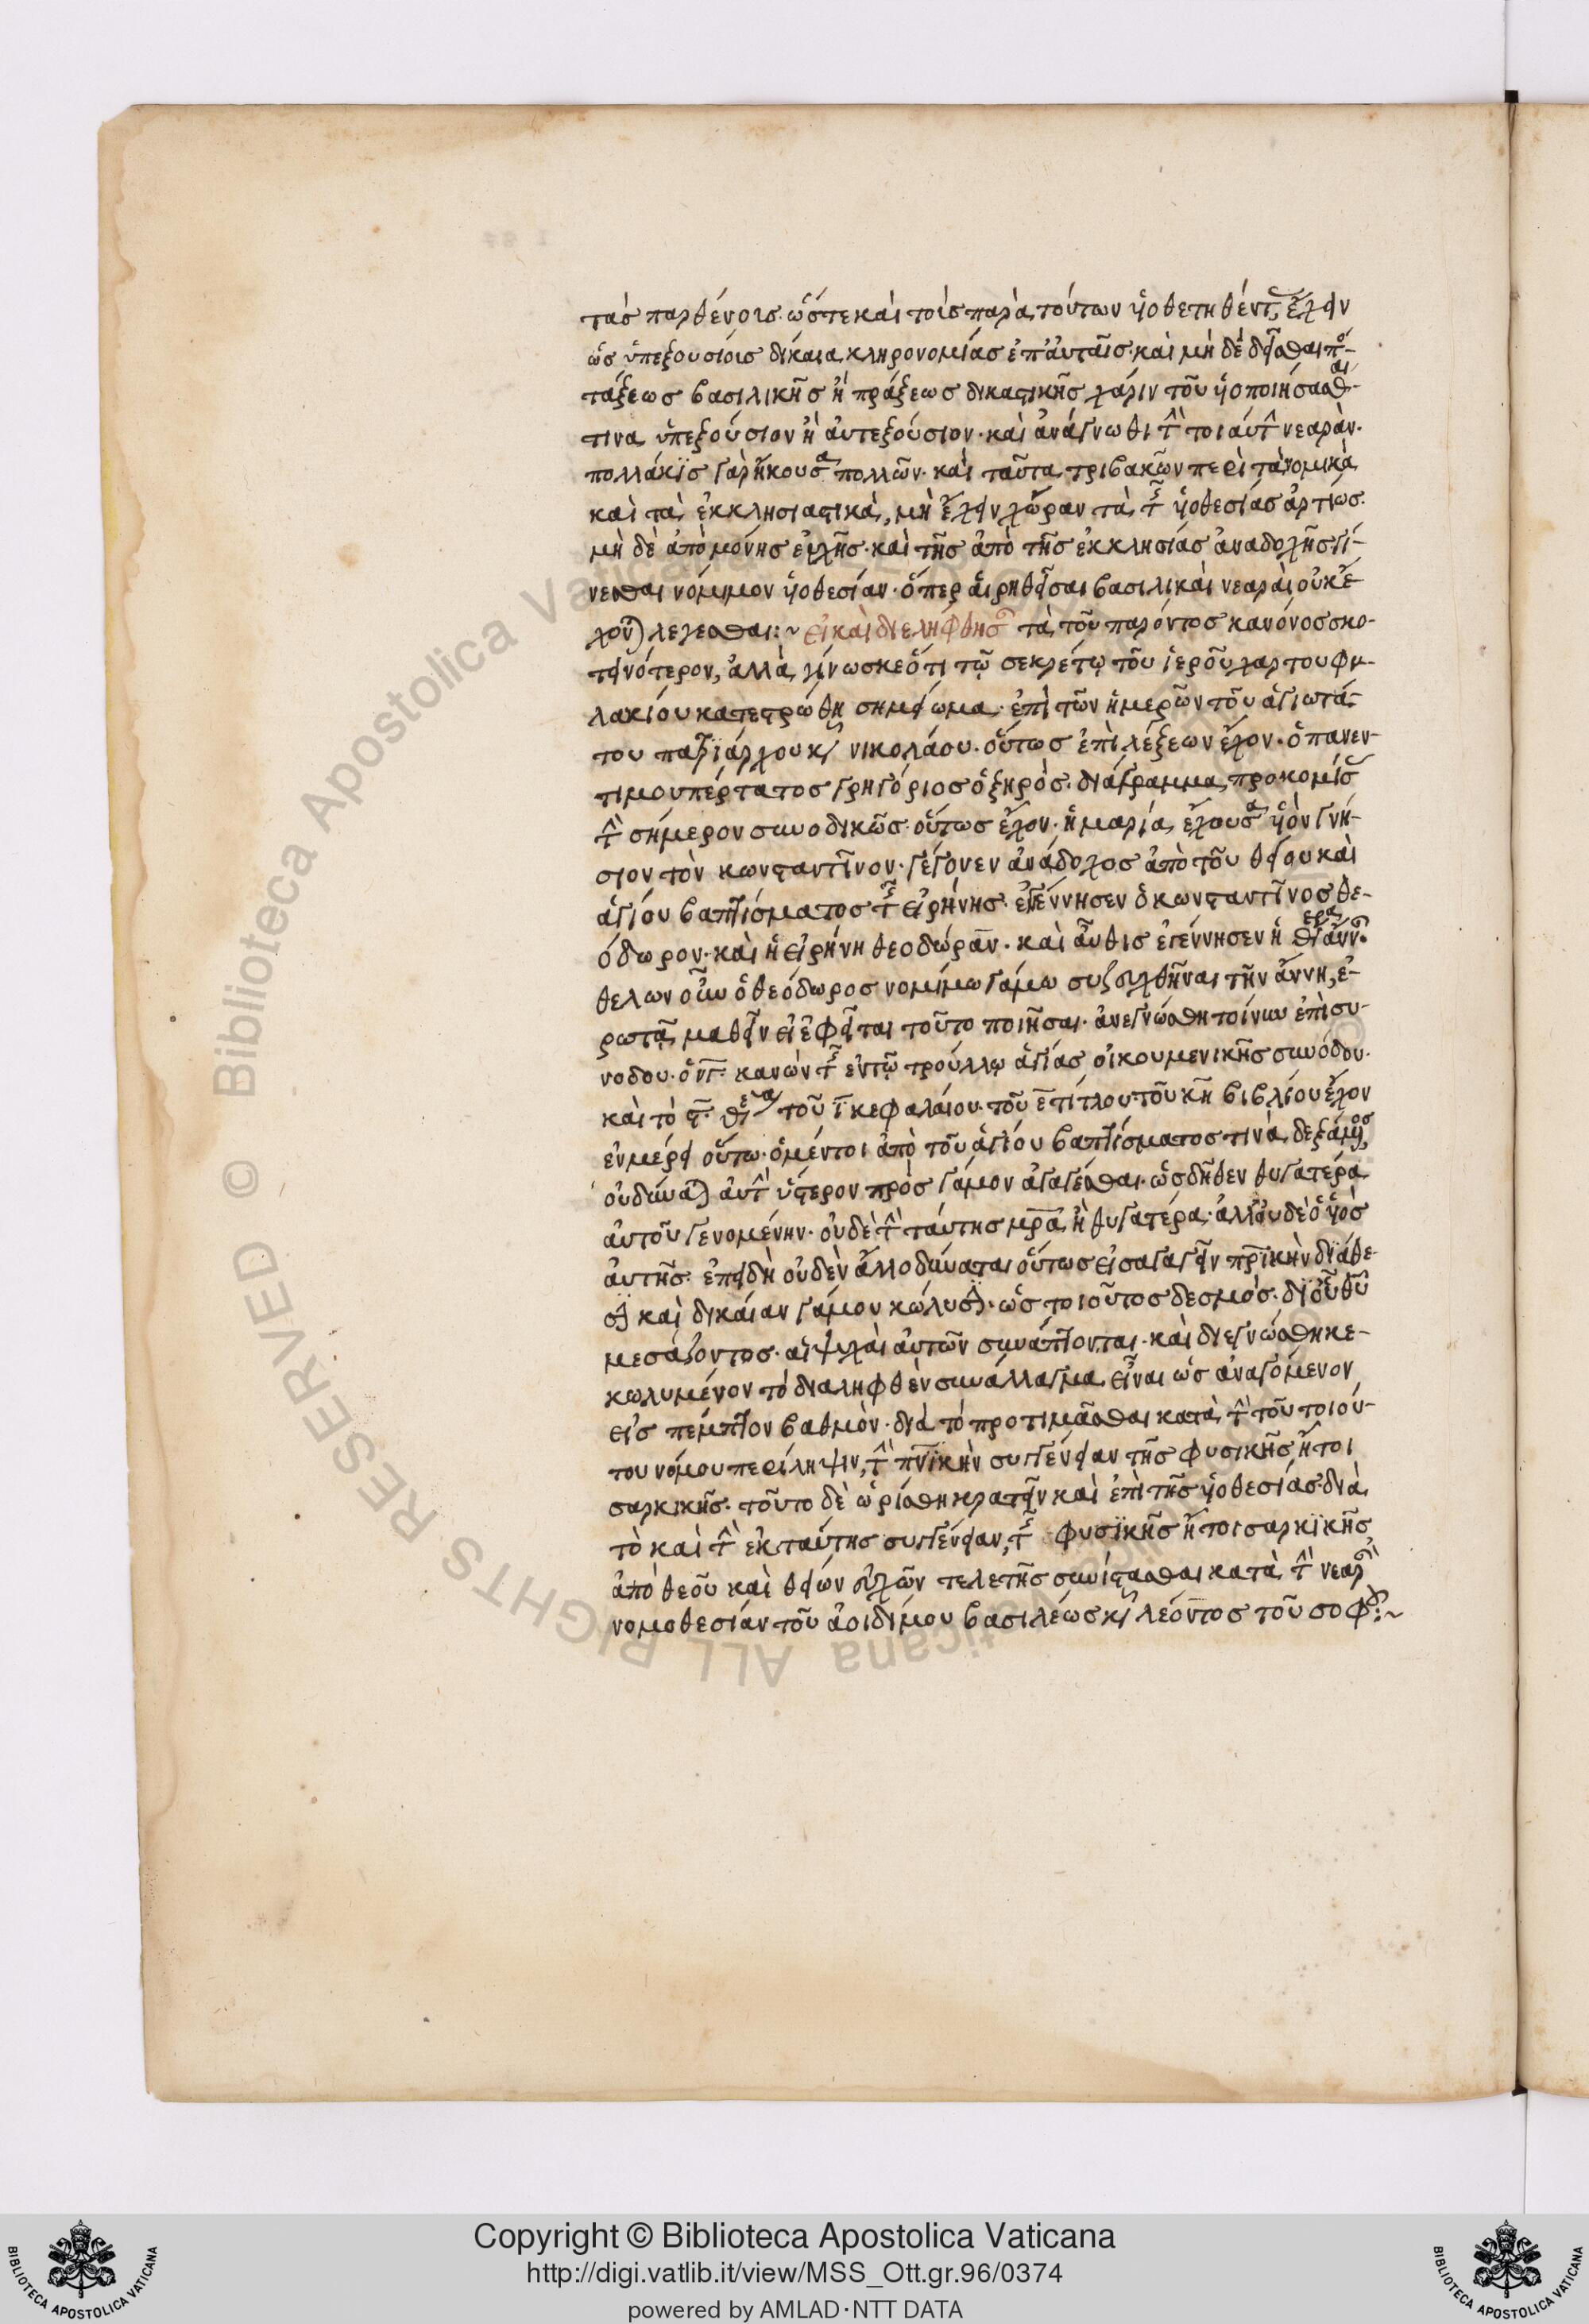 τὰς παρθένοις. ὥστε καὶ τοῖς παρὰ τούτων υἱοθετηθέντ ἔχειν
ὡς ὑπεξουσίοις δίκαια κληρονομίας ἐπ' αὐταῖς· καὶ μὴ δὲ δεῖσθαι προ-
τάξεως βασιλικῆς ἢ πράξεως δικαστικῆς χάριν τοῦ υἱοποιήσασθαι
τινα ὑπεξούσιον ἢ αὐτεξούσιον· καὶ ἀνάγνωθι τὴν τοιαύτην νεαράν.
πολλάκις γὰρ ἤκουσα πολλῶν· καὶ ταῦτα τριβακῶν περὶ τὰ νομικὰ
καὶ τὰ ἐκκλησιαστικὰ, μὴ ἔχειν χώραν τὰ τῆς υἱοθεσίας ἀρτίως.
μὴ δὲ ἀπὸ μόνης εὐχῆς· καὶ τῆς ἀπὸ τῆς ἐκκλησίας ἀναδοχῆς γί-
νεσθαι νόμιμον υἱοθεσίαν· ὅπερ αἱ ῥηθεῖσαι βασιλικαὶ νεαραὶ οὐκ ἔ-
χουσι λέγεσθαι:~ εἰ καὶ διελήφθησαν τὰ τοῦ παρόντος κανόνος σκο-
τεινότερον, ἀλλὰ γίνωσκε ὅτι τῷ σεκρέτῳ τοῦ ἱεροῦ χαρτουφυ-
λακίου κατεστρώθη σημείωμα· ἐπὶ τῶν ἡμερῶν τοῦ ἁγιωτά-
του πατριάρχου κυροῦ νικολάου· οὕτως ἐπὶ λέξεων ἔχον· ὁ πανεν-
τιμουπέρτατος γρηγόριος ὁ ξηρὸς· διάγραμμα προκομίσας
τὴν σήμερον συνοδικῶς· οὕτως ἔχον· ἡ μαρία ἔχουσα υἱὸν γνή-
σιον τὸν κωνσταντῖνον· γέγονεν ἀνάδοχος ἀπὸ τοῦ θείου καὶ
ἁγίου βαπτίσματος τῆς εἰρήνης· ἐγέννησεν ὁ κωνσταντῖνος θε-
όδωρον· καὶ ἡ εἰρήνη θεοδώραν· καὶ αὖθις ἐγέννησεν ἡ θεοδώρα ἄνναν·
θέλων οὖν ὁ θεόδωρος νομίμω γάμω συζευχθῆναι τὴν ἄννη, ἐ-
ρωτᾷ μαθεῖν εἰ ἐφεῖται τοῦτο ποιῆσαι· ἀνεγνώσθη τοίνυν ἐπὶ συ-
νόδου· ὁ νγ κανὼν τῆς ἐν τῷ τρούλλῳ ἁγίας οἰκουμενικῆς συνόδου.
καὶ τὸ ϛ θέμα τοῦ ι κεφαλαίου· τοῦ ε τίτλου τοῦ κη βιβλίου ἔχον
ἐν μέρει οὕτω· ὁ μέντοι ἀπὸ τοῦ ἁγίου βαπτίσματος τινὰ δεξάμενος
οὐ δύναται αὐτὴν ὕστερον πρὸς γάμον ἀγαγέσθαι· ὡς δῆθεν θυγατέρα
αὐτοῦ γενομένην· οὐδὲ τὴν ταύτης μρα ἢ θυγατέρα· ἀλλ' οὐδὲ ὁ υἱὸς
αὐτῆς· ἐπειδὴ οὐδὲν ἄλλο δύναται οὕτως εἰσαγαγεῖν πρικὴν διάθε-
σιν καὶ δικαίαν γάμου κώλυσιν· ὡς τοιοῦτος δεσμός· δι' οὗ θυ
μεσάζοντος· αἱ ψυχαὶ αὐτῶν συνάπτονται· καὶ διεγνώσθη κε-
κωλυμένον τὸ διαληφθὲν συνάλλαγμα εἶναι ὡς ἀναγόμενον
εἰς πέμπτον βαθμὸν· διὰ τὸ προτιμᾶσθαι κατὰ τὴν τοῦ τοιού-
του νόμου περίληψιν, τὴν πνικὴν συγγένειαν τῆς φυσικῆς ἤτοι
σαρκικῆς· τοῦτο δὲ ὡρίσθη κρατεῖν καὶ ἐπὶ τῆς υἱοθεσίας· διὰ
τὸ καὶ τὴν ἐκ ταύτης συγγένειαν, τῆς φυσικῆς ἤτοι σαρκικῆς
ἀπὸ θεοῦ καὶ θείων εὐχῶν τελετῆς συνίστασθαι κατὰ τὴν νεαρὰν
νομοθεσίαν τοῦ ἀοιδίμου βασιλέως κυροῦ λέοντος τοῦ σοφοῦ:~
Copyright © Biblioteca Apostolica Vaticana
http://digi.vatlib.it/view/MSS_Ott.gr.96/0374
powered by AMLAD·NTT DATA